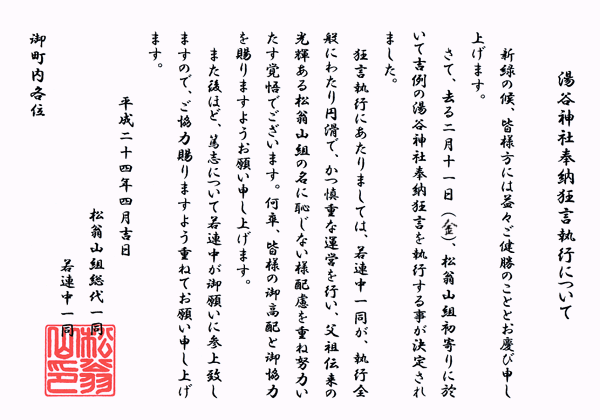 湯谷神社奉納狂言執行について
新緑の候、皆様方には益々ご健勝のこととお慶び申し
上げます。
さて、去る二月十一日（金）、松翁山組初寄りに於
いて吉例の湯谷神社奉納狂言を執行する事が決定され
ました。
狂言執行にあたりましては、若連中一同が、執行全
般にわたり円滑で、かつ慎重な運営を行い、父祖伝来の
光輝ある松翁山組の名に恥じない様配慮を重ね努力い
たす覚悟でございます。何卒、皆様の御高配と御協力
を賜りますようお願い申し上げます。
また後ほど、篤志について若連中が御願いに参上致し
ますので、ご協力賜りますよう重ねてお願い申し上げ
ます。
平成二十四年四月吉日
松翁山組総代一同
若連中一同
松翁
山印
御町内各位